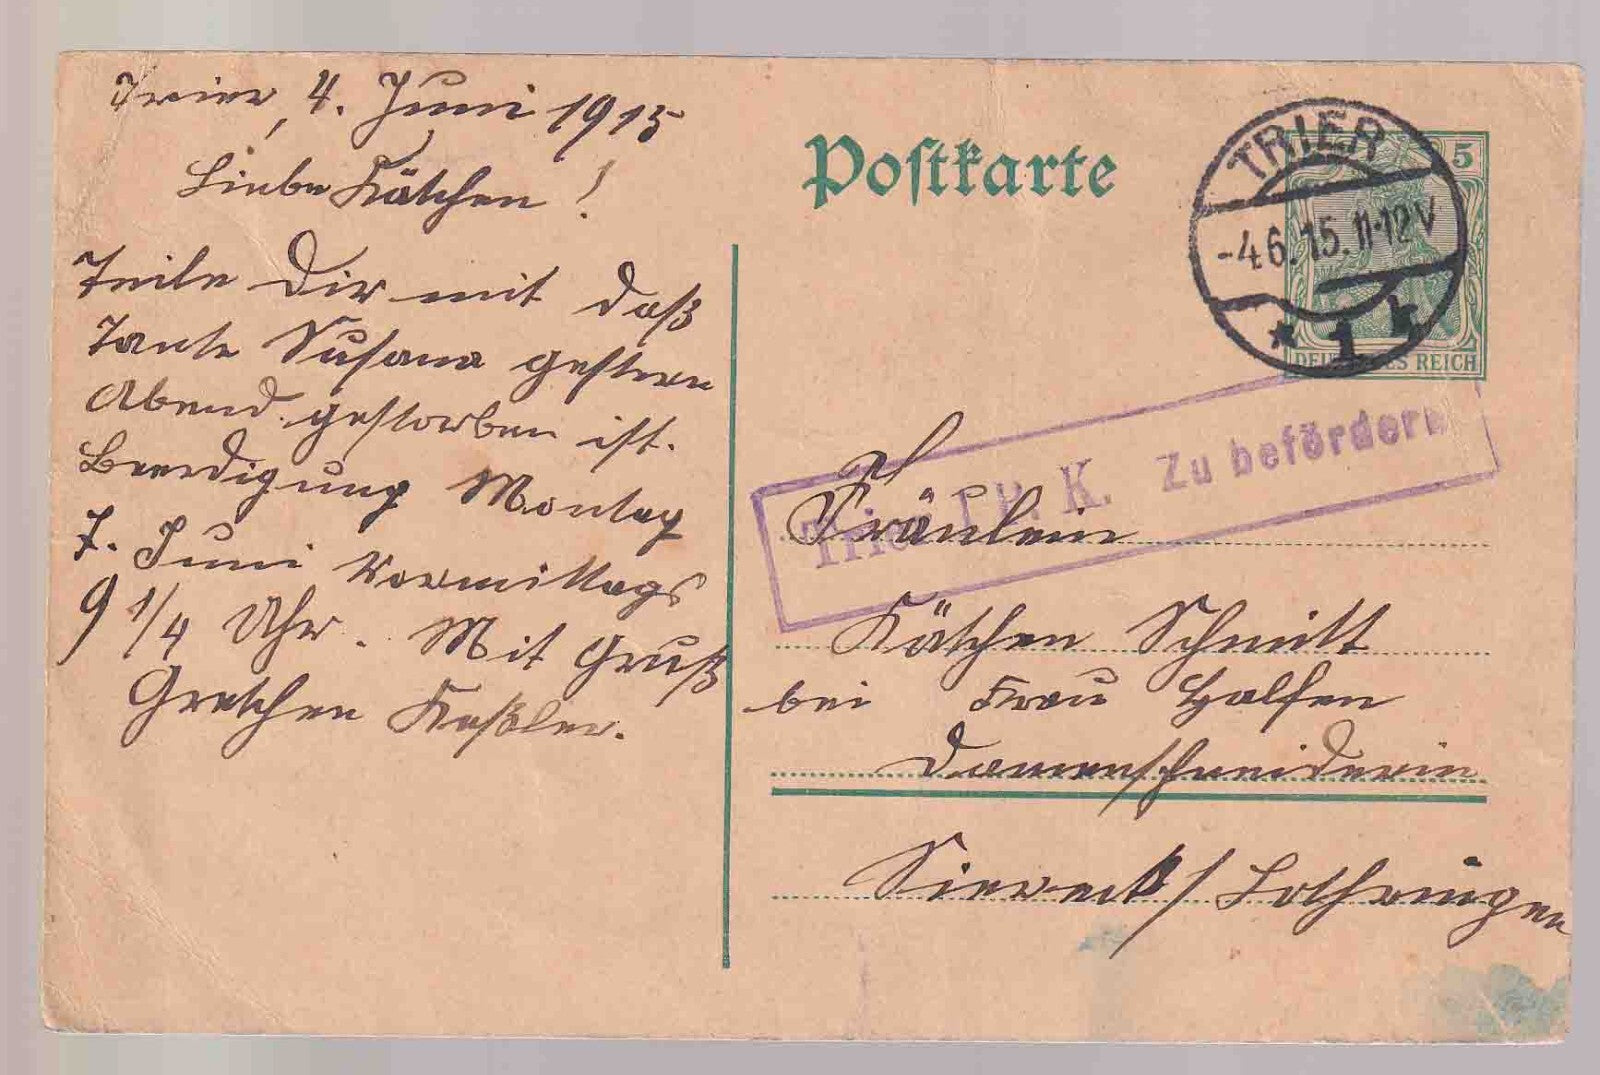 Trier, 4. Juni 1915
Liebe Kätchen!
Teile Dir mit daß
Tante Susana gestern
Abend gestorben ist.
Beerdigung Montag
7. Juni Vormittags
9 1/4 Uhr. Mit Gruß
Gretchen Keßler.
Postkarte
TRIER
-4.6.15.11-12V
* 1 k
5
DEUTSCHES REICH
Trier P. K. Zu befördern
Fräulein
Kätchen Schmitt
bei Frau Halfen
Damenschneiderin
Siereck/Lothringen